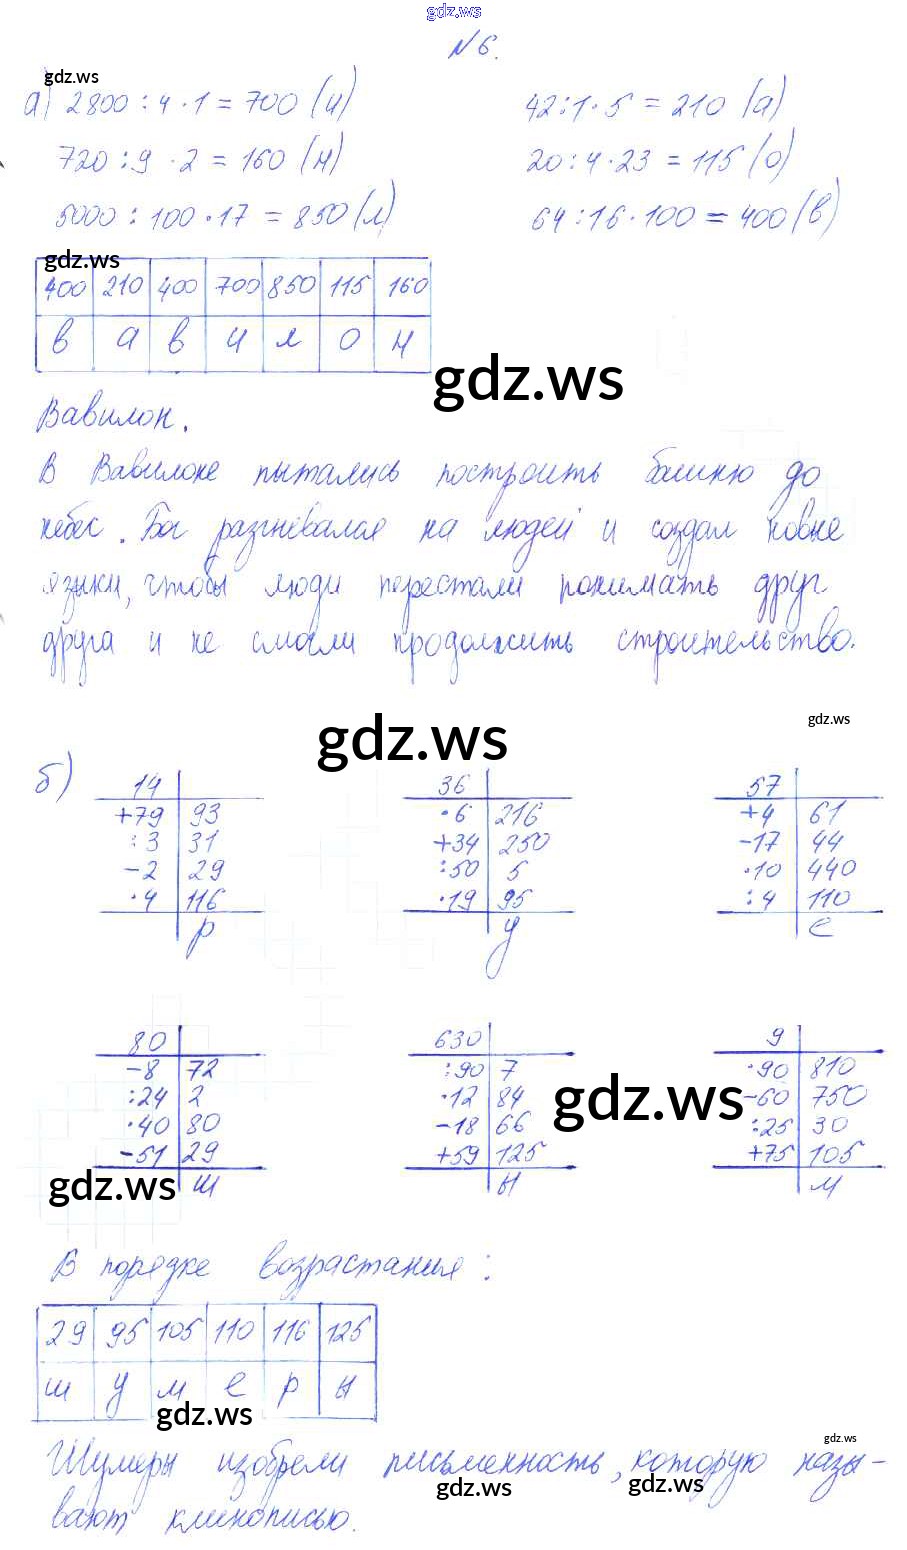 gdz.ws
N 6.
gdz.ws
а) 2800 : 4 · 1 = 700 (и) 42 : 1 · 5 = 210 (а)
720 : 9 · 2 = 160 (н) 20 : 4 · 23 = 115 (о)
5000 : 100 · 17 = 850 (л) 64 : 16 · 100 = 400 (в)
gdz.ws
400 210 400 700 850 115 160
в а в и л о н
gdz.ws
Вавилон.
В Вавилоне пытались построить башню до
небес. Бог разгневался на людей и создал новые
языки, чтобы люди перестали понимать друг
друга и не смогли продолжить строительство.
gdz.ws
gdz.ws
б)
14
+79 93
:3 31
-2 29
·4 116
р
36
·6 216
+34 250
:50 5
·19 95
у
57
+4 61
-17 44
·10 440
:4 110
е
80
-8 72
:24 2
·40 80
-51 29
ш
630
:90 7
·12 84
-18 66
+59 125
ы
9
·90 810
-60 750
:25 30
+75 105
м
gdz.ws
gdz.ws
В порядке возрастания:
29 95 105 110 116 125
ш у м е р ы
gdz.ws
gdz.ws
Шумеры изобрели письменность, которую назы-
gdz.ws
gdz.ws
вают клинописью.